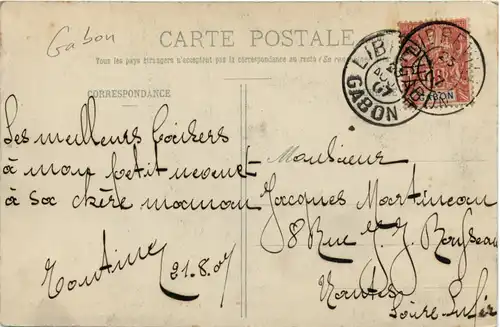 Gabon
CARTE POSTALE
Tous les pays étrangers n'acceptent pas la correspondance au recto (Se ren
CORRESPONDANCE
LIB
GABON
07
GABON
Les meilleurs baisers
à mon petit neveu et
à sa chère maman
Tontine
21.8.07
Monsieur
Jacques Martineau
8 Rue J. J. Rousseau
Nantes
Loire Infre